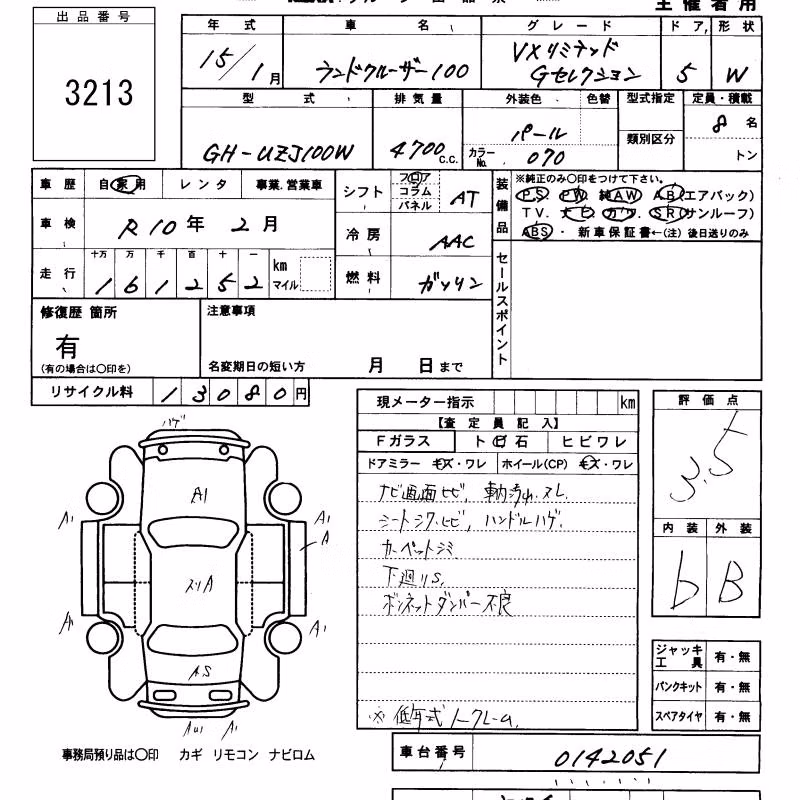 主催者用
出品番号
3213
年式 車名 グレード ドア 形状
15/1月 ランドクルーザー100 VXリミテッド Gセレクション 5 W
型式 排気量 外装色 色替 型式指定 定員・積載
GH-UZJ100W 4700c.c. パール カラーNo. 070 類別区分 8名 トン
車歴 自家用 レンタ 事業.営業車
シフト フロア コラム パネル AT
車検 R10年2月
冷房 AAC
走行 十万 万 千 百 十 一 km マイル
161252
燃料 ガソリン
装備品 ※純正のみ○印をつけて下さい。
PS PW 純AW AB(エアバック)
TV. ナビ カワ. SR(サンルーフ)
ABS・ 新車保証書←(注) 後日送りのみ
セールスポイント
修復歴 箇所
有
(有の場合は○印を)
注意事項
名変期日の短い方 月 日まで
リサイクル料 13080円
現メーター指示 km
【査定員記入】
Fガラス トビ石 ヒビワレ
ドアミラー キズ・ワレ ホイール(CP) キズ・ワレ
ナビ画面ヒビ,
シートシワ.ヒビ, ハンドルハゲ.
カーペットシミ
下廻りS.
ボンネットダンパー不良
評価点
3.5
内装 外装
b B
ハゲ
A1
A1
A1
A
A
A1
A1
AS
A1
ジャッキ 工具 有・無
パンクキット 有・無
スペアタイヤ 有・無
事務局預り品は○印 カギ リモコン ナビロム
車台番号 0142051